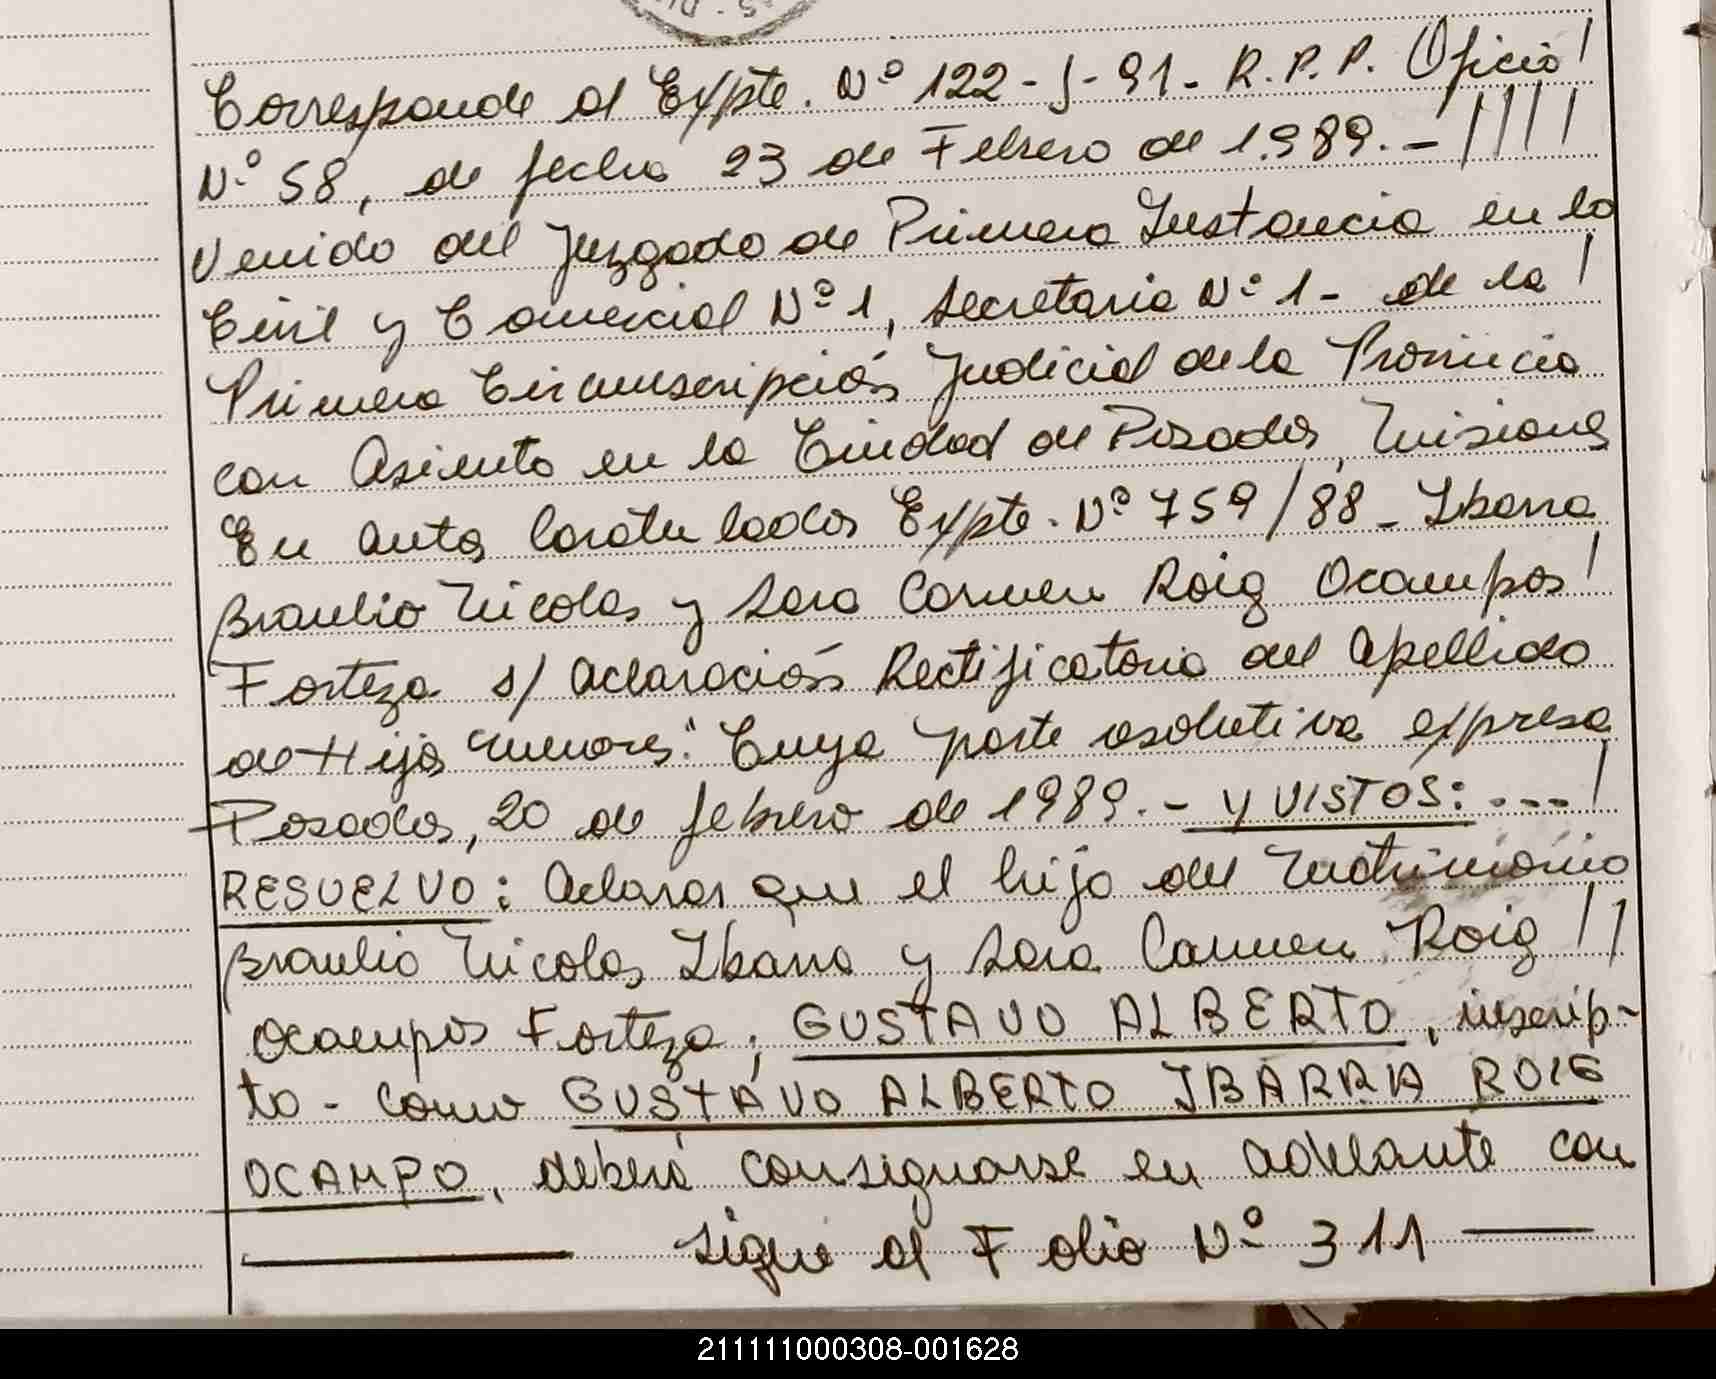 Corresponde al Expte. Nº 122-J-91- R.P.P. Oficio/
Nº 58, de fecha 23 de Febrero de 1.989.-/////
Venido del Juzgado de Primera Instancia en lo
Civil y Comercial Nº 1, Secretaria Nº 1- de la/
Primera Circunscripción Judicial de la Provincia
con Asiento en la Ciudad de Posadas, Misiones
En Autos Caratulados Expte. Nº 759/88- Ibarra
Braulio Nicolas y Sara Carmen Roig Ocampos/
Forteza s/ Aclaración Rectificatoria del Apellido
de Hijos "menores". Cuya parte resolutiva expresa
Posadas, 20 de febrero de 1989.- Y VISTOS:..../
RESUELVO: Aclarar que el hijo del Matrimonio
Braulio Nicolas Ibarra y Sara Carmen Roig //
Ocampos Forteza; GUSTAVO ALBERTO, inscrip-
to- como GUSTAVO ALBERTO IBARRA ROIG
OCAMPO, deberá consignarse en adelante con
sigue al Folio Nº 311
211111000308-001628